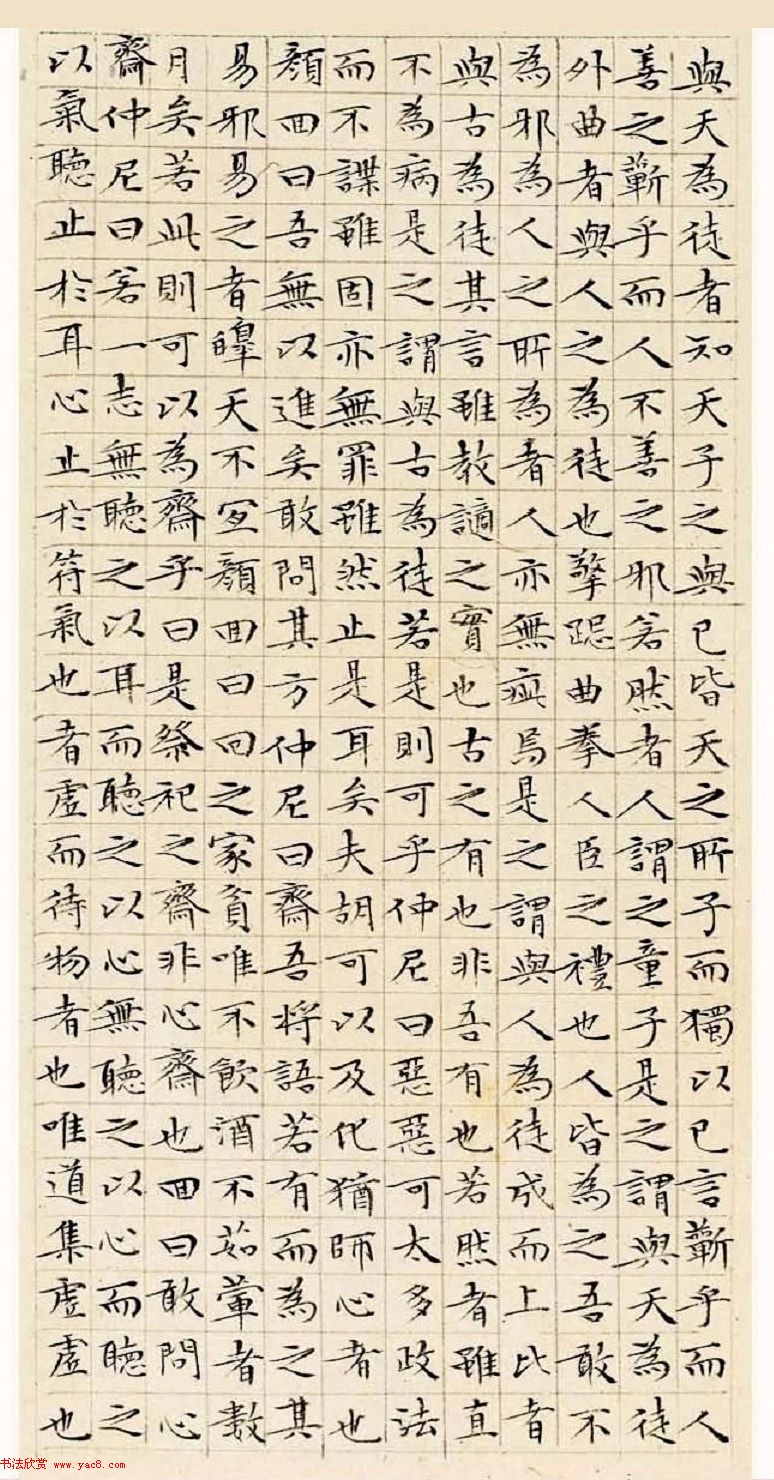 與天為徒者知天子之與已皆天之所子而獨以已言蘄乎而人
善之蘄乎而人不善之邪若然者人謂之童子是之謂與天為徒
外曲者與人之為徒也擎跽曲拳人臣之禮也人皆為之吾敢不
為邪為人之所為者人亦無疵焉是之謂與人為徒成而上比者
與古為徒其言雖教謫之實也古之有也非吾有也若然者雖直
不為病是之謂與古為徒若是則可乎仲尼曰惡惡可太多政法
而不諜雖固亦無罪雖然止是耳矣夫胡可以及化猶師心者也
顏回曰吾無以進矣敢問其方仲尼曰齋吾將語若有而為之其
易邪易之者皞天不宜顏回曰回之家貧唯不飲酒不茹葷者數
月矣若此則可以為齋乎曰是祭祀之齋非心齋也回曰敢問心
齋仲尼曰若一志無聽之以耳而聽之以心無聽之以心而聽之
以氣聽止於耳心止於符氣也者虛而待物者也唯道集虛虛也
书法欣赏 www.yac8.com